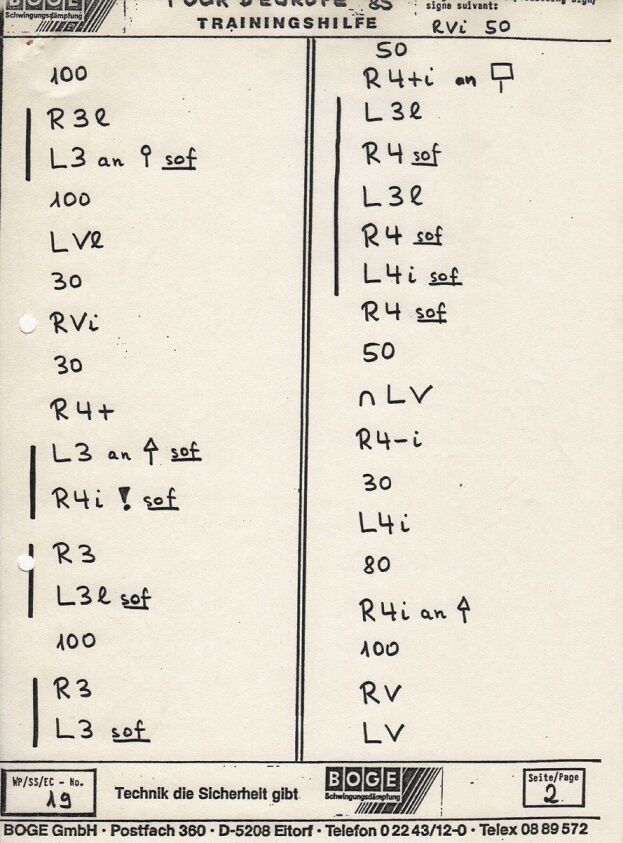 BOGE
Schwingungsdämpfung
TOUR D'EUROPE 85
TRAININGSHILFE
signe suivant:
RVi 50
100
R3l
L3 an sof
100
LVl
30
RVi
30
R4+
L3 an sof
R4i ! sof
R3
L3l sof
100
R3
L3 sof
50
R4+i an
L3l
R4 sof
L3l
R4 sof
L4i sof
R4 sof
50
∩ LV
R4-i
30
L4i
80
R4i an
100
RV
LV
WP/SS/EC - No.
19
Technik die Sicherheit gibt
BOGE
Schwingungsdämpfung
Seite/Page
2
BOGE GmbH · Postfach 360 · D-5208 Eitorf · Telefon 0 22 43/12-0 · Telex 08 89 572